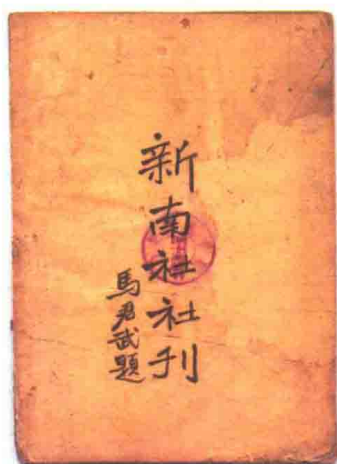 新南社社刊
馬君武題